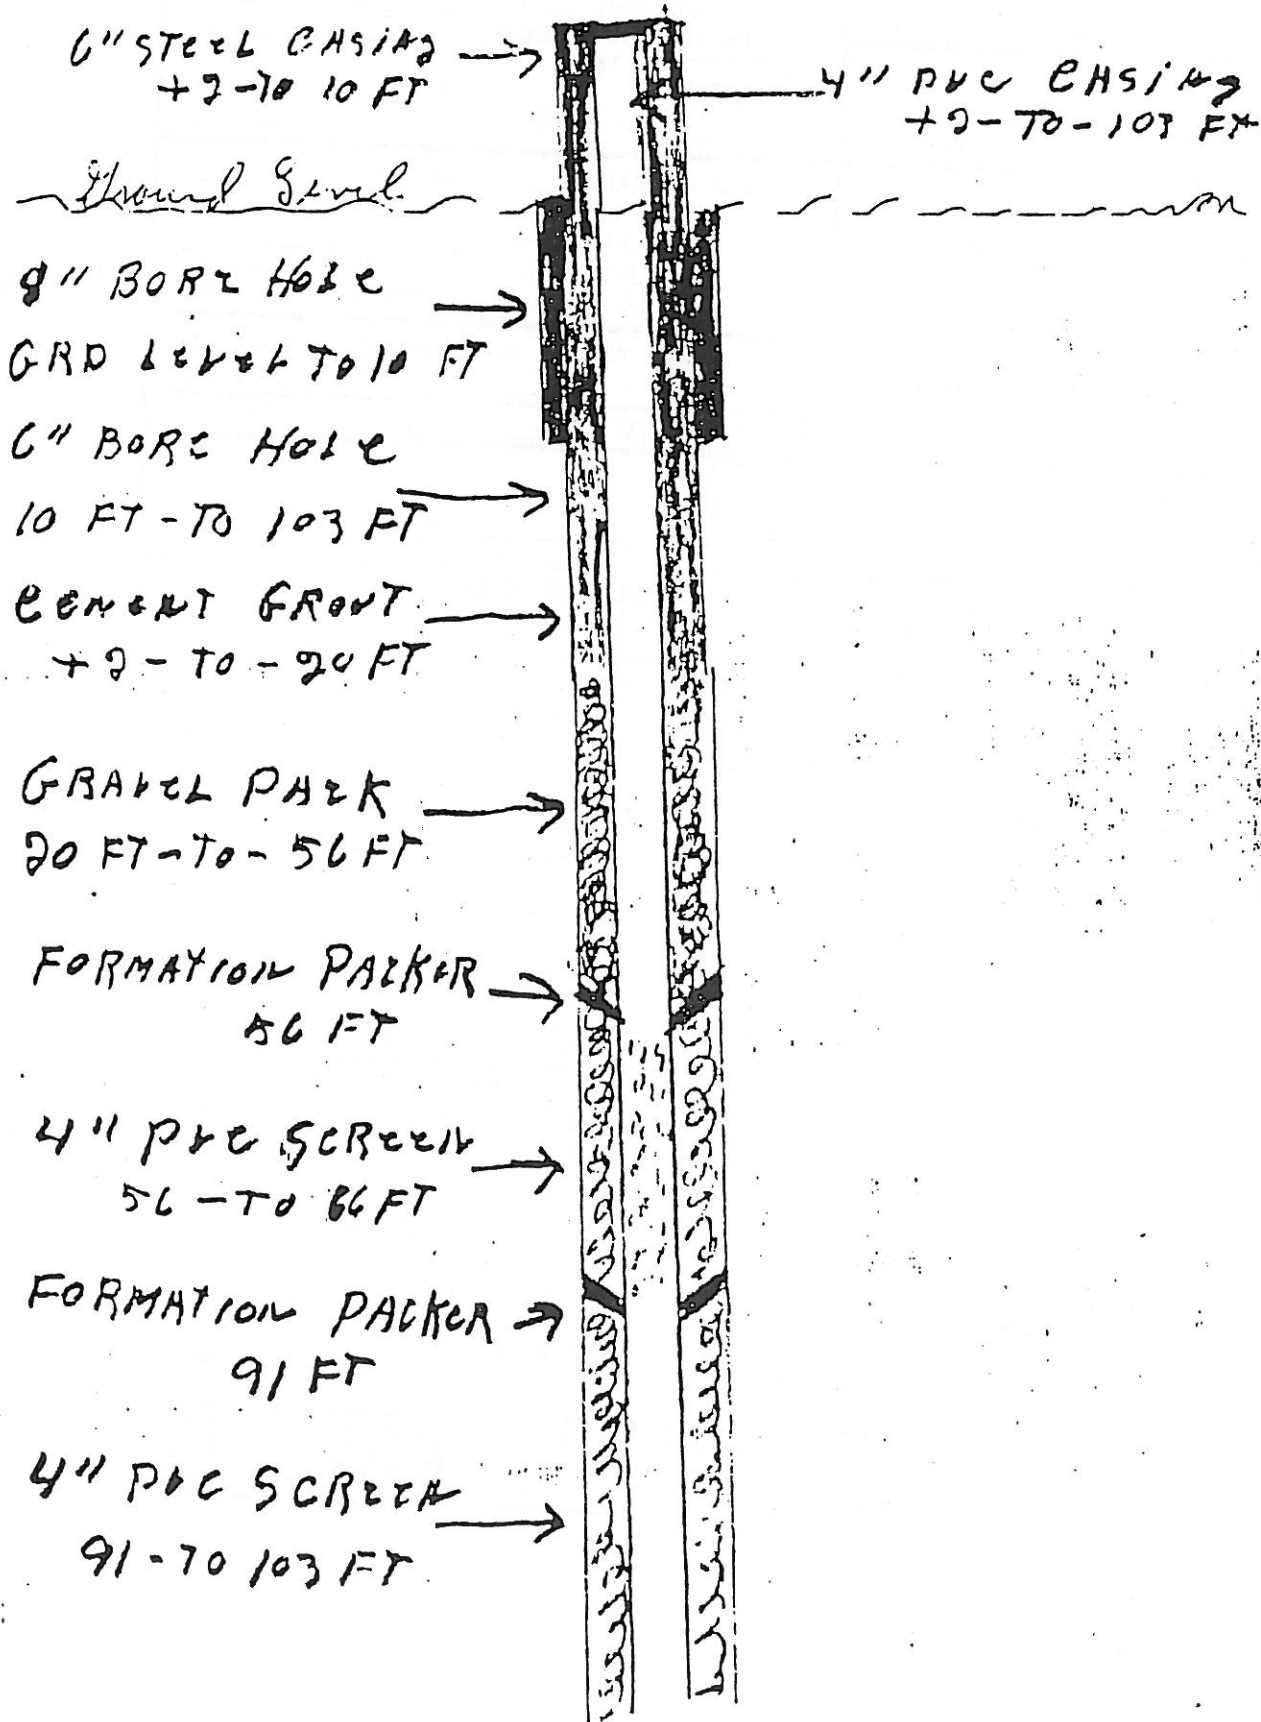 6" STEEL CASING
+2-TO 10 FT
4" PVC CASING
+2-TO-103 FT
Ground Level
8" BORE HOLE
GRD LEVEL TO 10 FT
6" BORE HOLE
10 FT-TO 103 FT
CEMENT GROUT
+2-TO-20 FT
GRAVEL PACK
20 FT-TO-56 FT
FORMATION PACKER
56 FT
4" PVC SCREEN
56-TO 66 FT
FORMATION PACKER
91 FT
4" PVC SCREEN
91-TO 103 FT